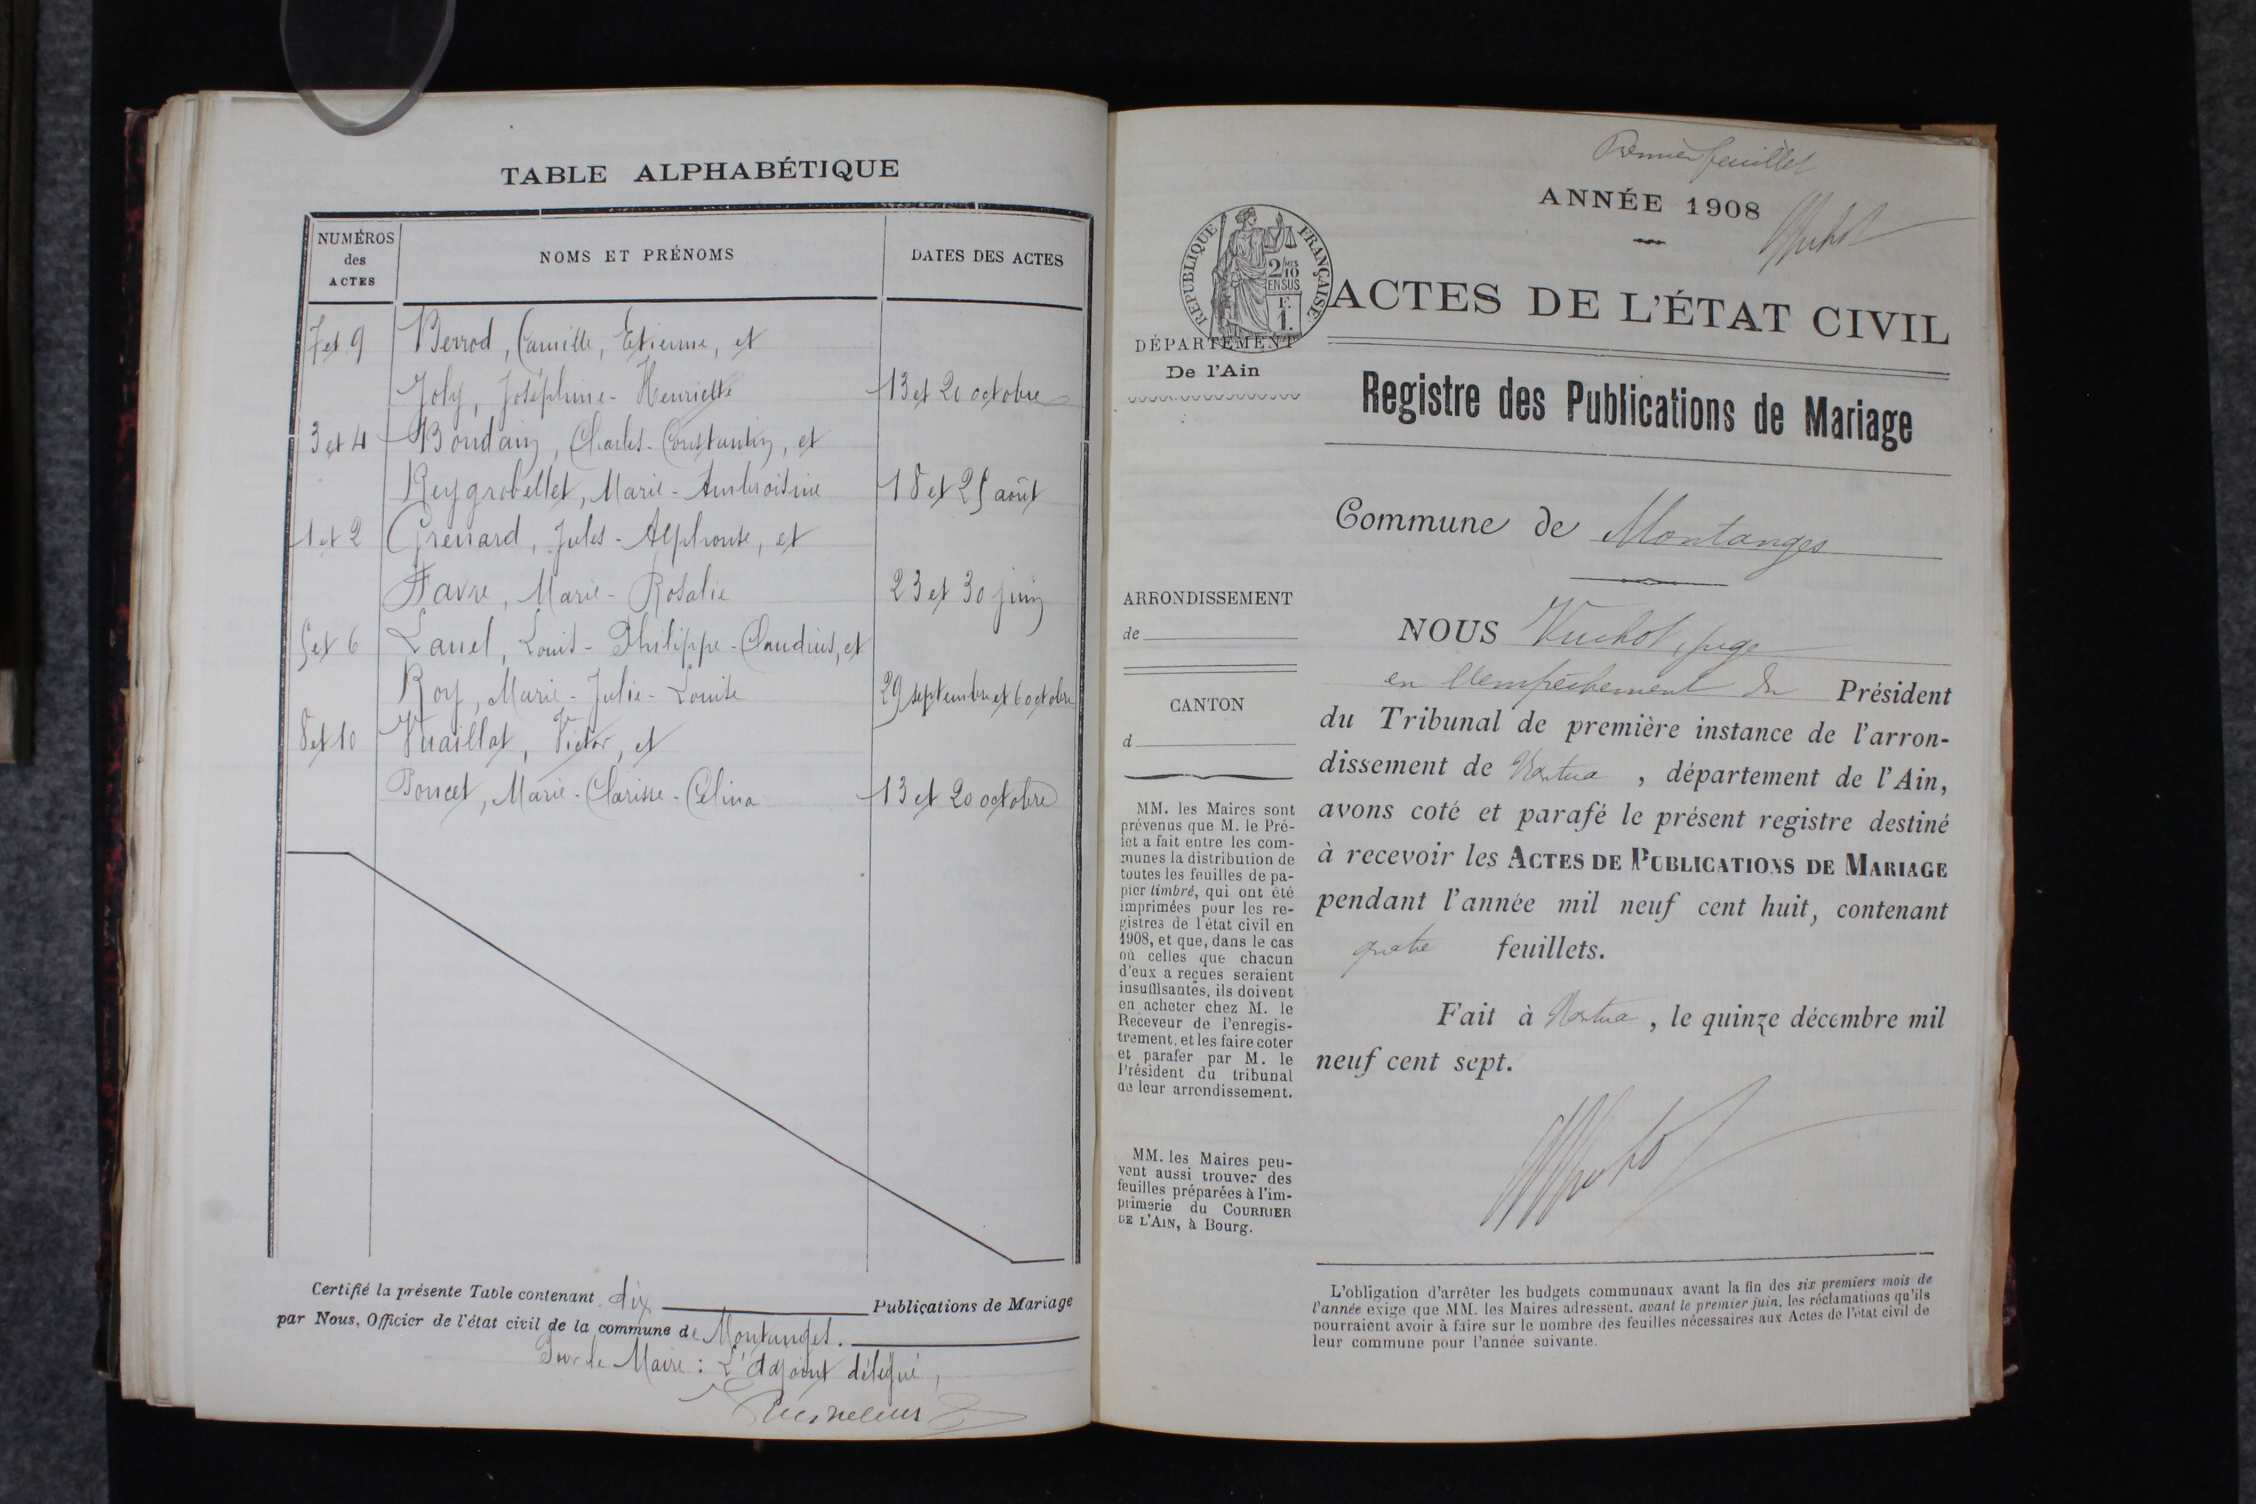 TABLE ALPHABÉTIQUE
NUMÉROS
des
ACTES
NOMS ET PRÉNOMS
DATES DES ACTES
7 et 9 Berrod, Camille, Etienne, et
Joly, Joséphine-Henriette 13 et 20 octobre
3 et 4 Boudain, Charles-Constantin, et
Reygrobellet, Marie-Ambroisine 18 et 25 août
1 et 2 Grenard, Jules-Alphonse, et
Favre, Marie-Rosalie 23 et 30 juin
5 et 6 Lauel, Louis-Philippe-Claudius, et
Roy, Marie-Julie-Louise 29 septembre et 6 octobre
8 et 10 Vuaillat, Victor, et
Poncet, Marie-Clarisse-Célina 13 et 20 octobre
Certifié la présente Table contenant dix Publications de Mariage
par Nous, Officier de l'état civil de la commune de Montanges.
Pour le Maire : L'adjoint délégué,
Premier feuillet
ANNÉE 1908
RÉPUBLIQUE FRANÇAISE
2/10
EN SUS
F.
1.
ACTES DE L'ÉTAT CIVIL
DÉPARTEMENT
De l'Ain
Registre des Publications de Mariage
Commune de Montanges
ARRONDISSEMENT
de
CANTON
d
MM. les Maires sont
prévenus que M. le Pré-
fet a fait entre les com-
munes la distribution de
toutes les feuilles de pa-
pier timbré, qui ont été
imprimées pour les re-
gistres de l'état civil en
1908, et que, dans le cas
où celles que chacun
d'eux a reçues seraient
insuffisantes, ils doivent
en acheter chez M. le
Receveur de l'enregis-
trement, et les faire coter
et parafer par M. le
Président du tribunal
de leur arrondissement.
MM. les Maires peu-
vent aussi trouver des
feuilles préparées à l'im-
primerie du COURRIER
DE L'AIN, à Bourg.
NOUS Vuchot, juge
en l'empêchement du Président
du Tribunal de première instance de l'arron-
dissement de Nantua, département de l'Ain,
avons coté et parafé le présent registre destiné
à recevoir les ACTES DE PUBLICATIONS DE MARIAGE
pendant l'année mil neuf cent huit, contenant
quatre feuillets.
Fait à Nantua, le quinze décembre mil
neuf cent sept.
L'obligation d'arrêter les budgets communaux avant la fin des six premiers mois de
l'année exige que MM. les Maires adressent, avant le premier juin, les réclamations qu'ils
pourraient avoir à faire sur le nombre des feuilles nécessaires aux Actes de l'état civil de
leur commune pour l'année suivante.